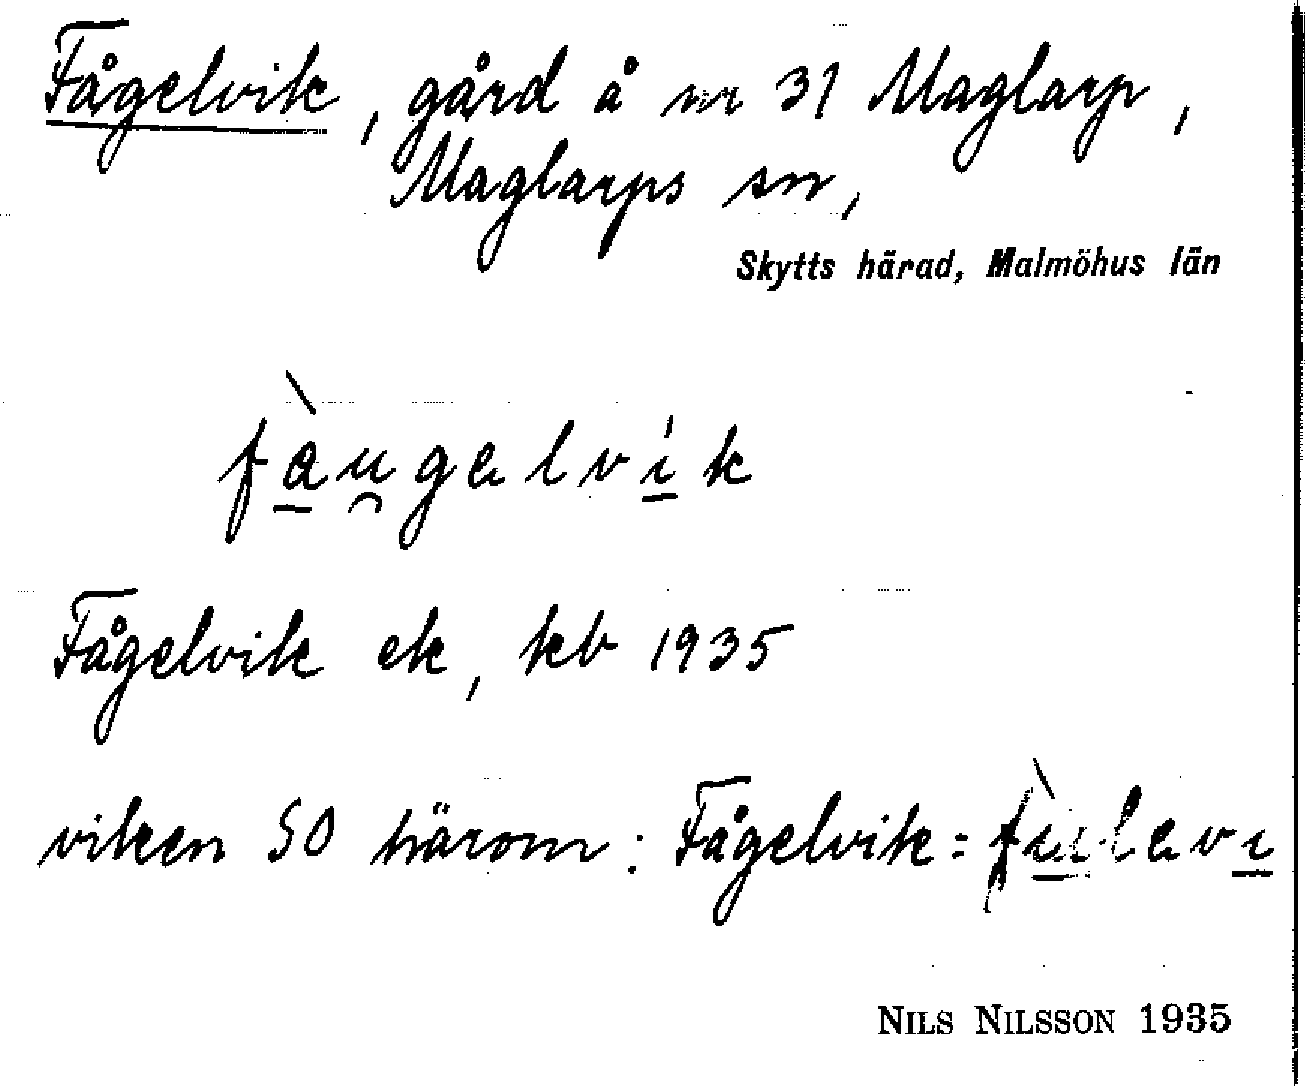 Fågelvik, gård å nr 31 Maglarp,
Maglarps sn,
Skytts härad, Malmöhus län
fàu̯gəlvík
Fågelvik ek, kb 1935
viken SO härom: Fågelvik =
NILS NILSSON 1935